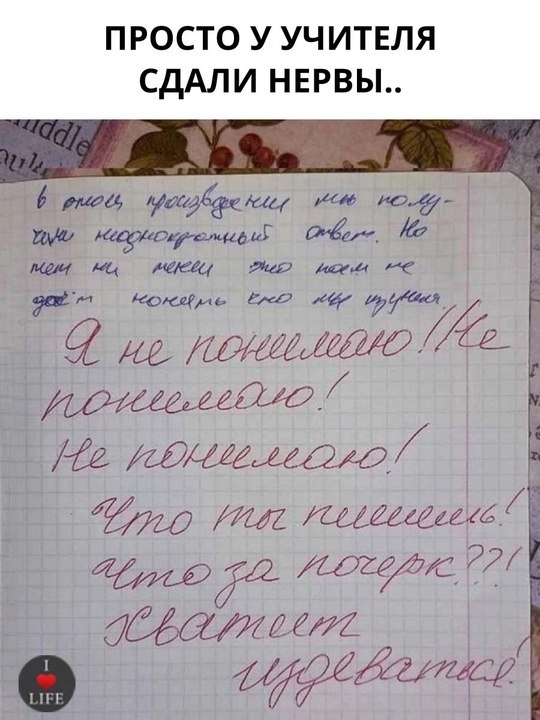 ПРОСТО У УЧИТЕЛЯ
СДАЛИ НЕРВЫ..
ddle
в этом произведении мы полу-
чили неоднократный ответ. Но
тем ни мени это нам не
даёт понять кто мы изучели
Я не понимаю! Не
понимаю!
Не понимаю!
Что ты пишешь!
Что за почерк??!
Хватит
издеваться!
I
LIFE